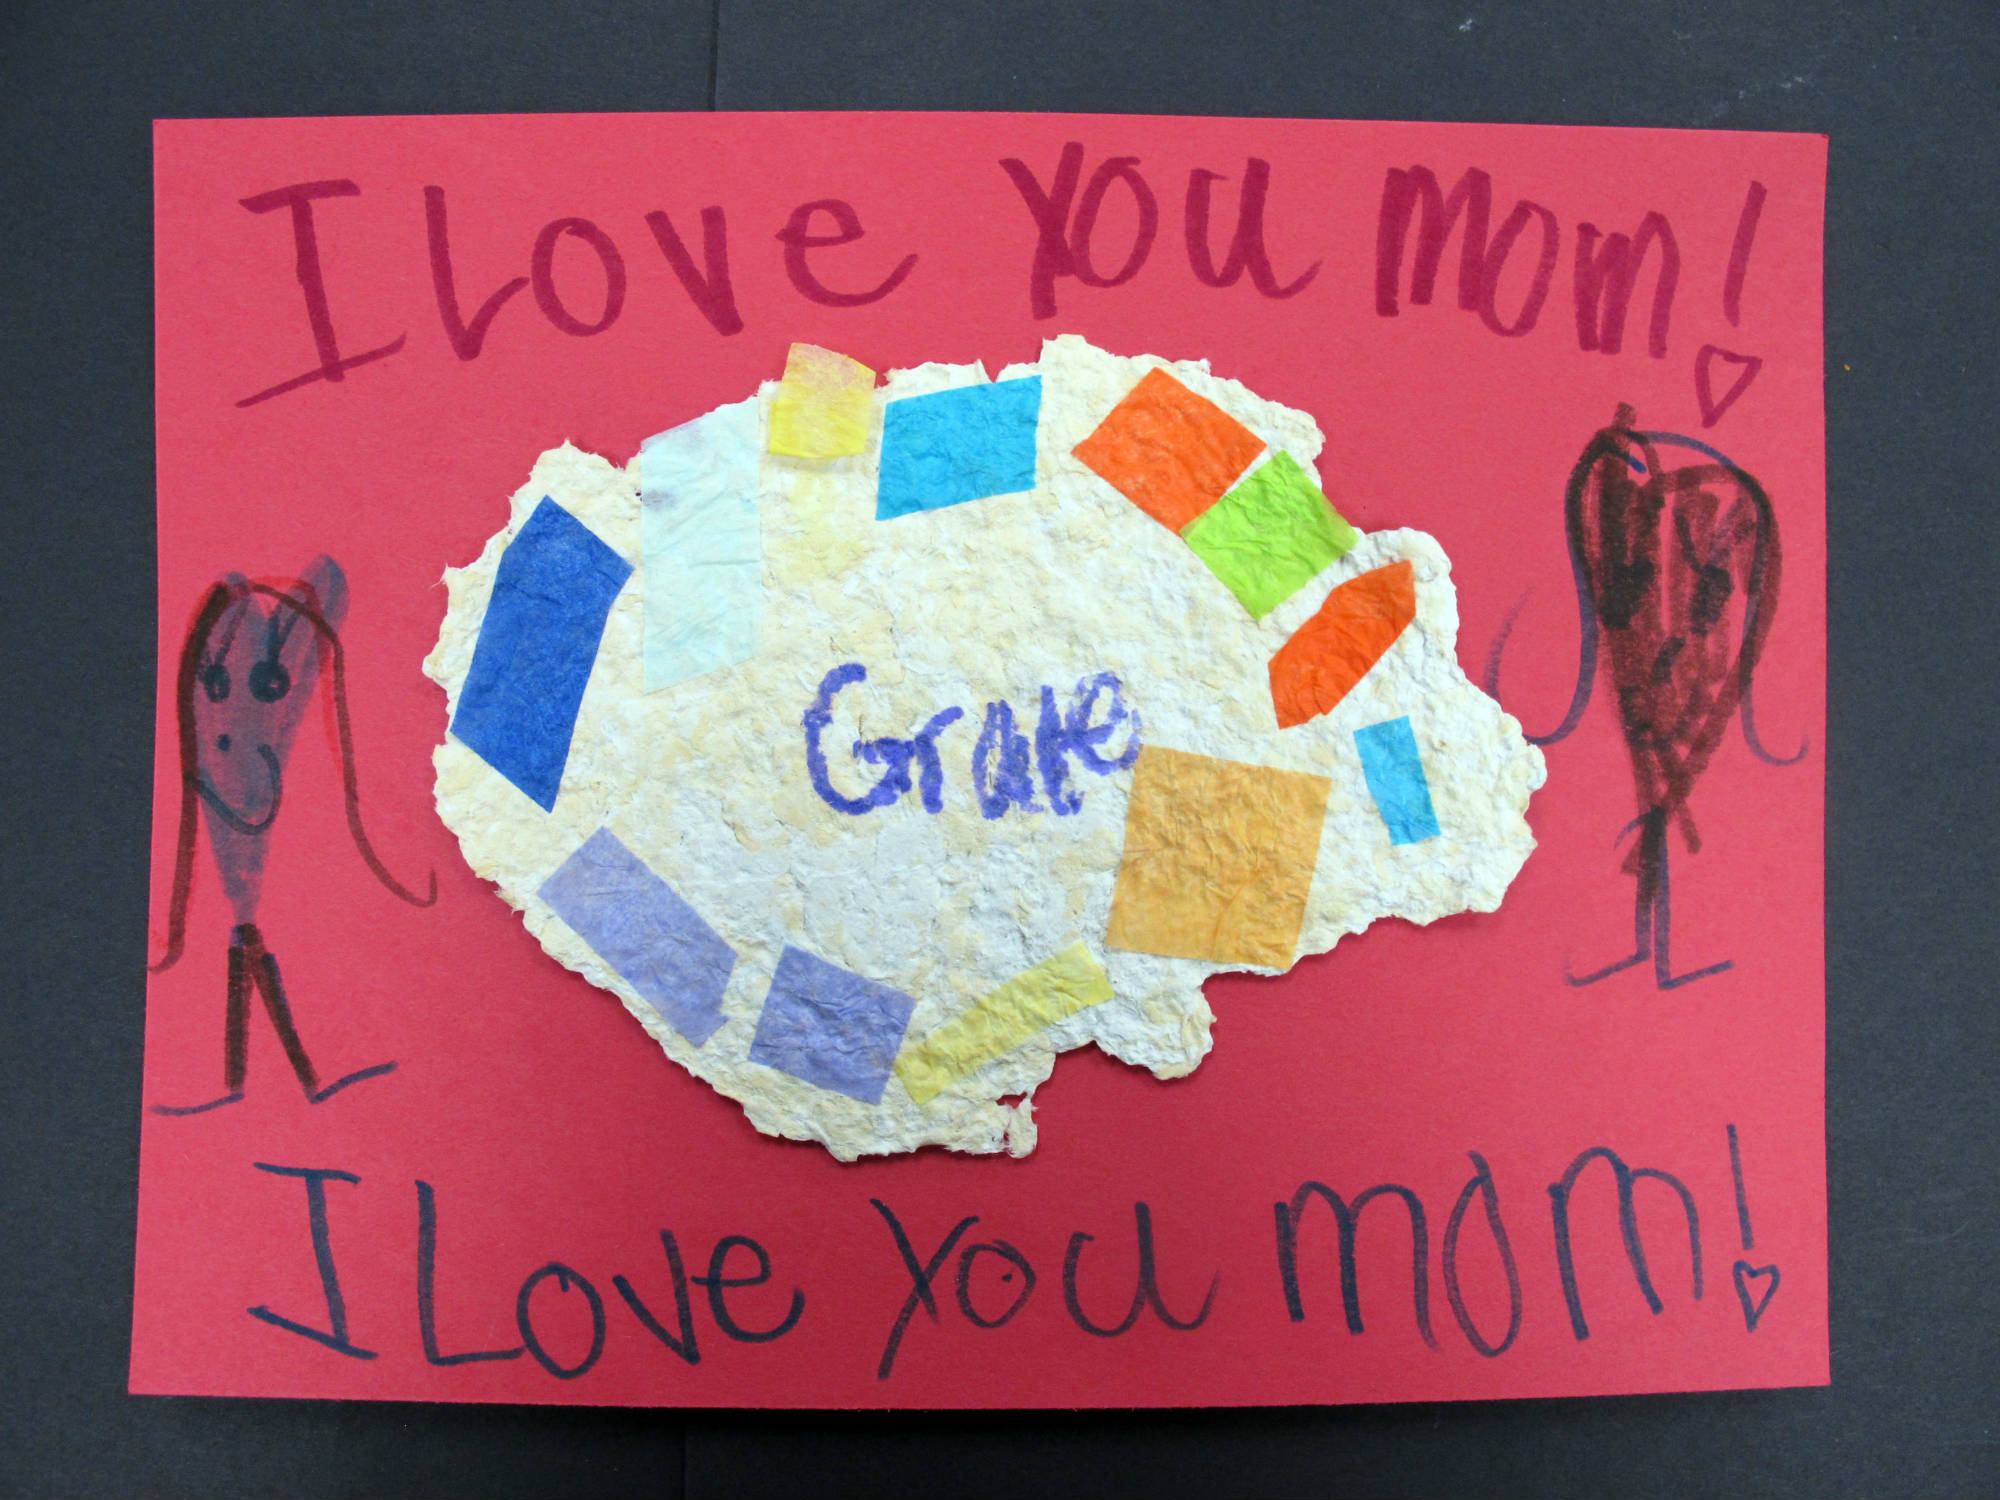 I Love You Mom!
Grate
I Love You Mom!